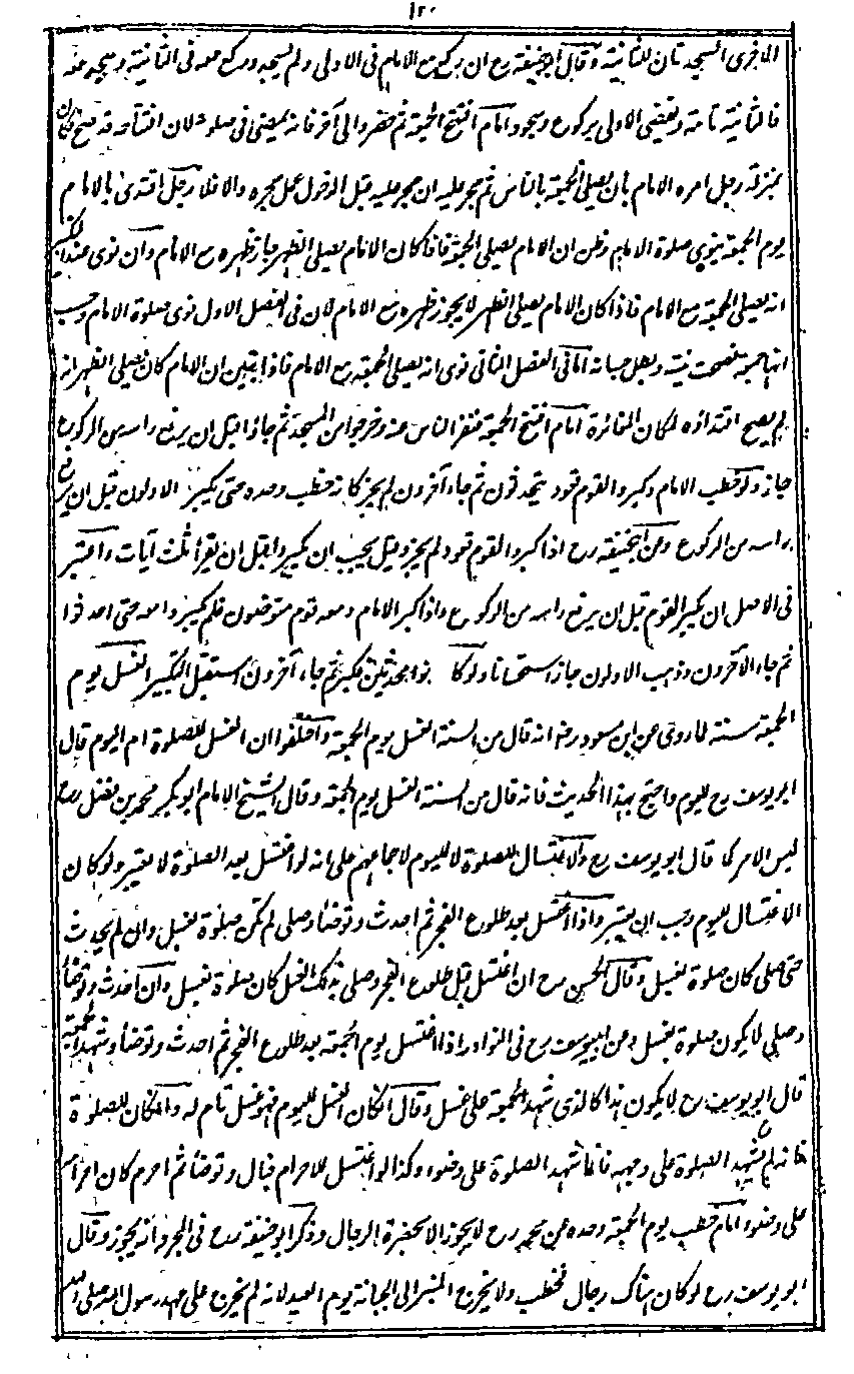 ١٢٠
الاخرى السجدتان للثانية وقال ابو حنيفة رح ان ركع مع الامام فى الاولى ولم يسجد وركع معه فى الثانية وسجد معه
فالثانية تامة ويقضى الاولى بركوع وسجود امام افتتح الجمعة ثم حضر وال آخر فانه يمضى فى صلوته لان افتتاحه قد صح فكان
بمنزلة رجل امره الامام بان يصلى الجمعة بالناس ثم حجر عليه ان حجر عليه قبل الدخول عمل حجره والا فلا رجل اقتدى بالامام
يوم الجمعة ينوى صلوة الامام وظن ان الامام يصلى الجمعة فاذا كان الامام يصلى الظهر جاز ظهره مع الامام وان نوى عند التكبير
انه يصلى الجمعة مع الامام فاذا كان الامام يصلى الظهر لا يجوز ظهره مع الامام لان فى الفصل الاول نوى صلوة الامام وحسب
انها جمعة فصحت نيته وبطل حسبانه اما فى الفصل الثانى نوى انه يصلى الجمعة مع الامام فاذا تبين ان الامام كان يصلى الظهر انه
لم يصح اقتداؤه لمكان المغائرة امام افتتح الجمعة فنفر الناس عنه وخرجوا من المسجد ثم جاؤا قبل ان يرفع راسه من الركوع
جاز ولو خطب الامام وكبر والقوم قعود يتحدثون ثم جاء آخرون لم يجز كانه خطب وحده حتى يكبر الاولون قبل ان يرفع
راسه من الركوع وعن ابيحنيفة رح اذا كبر والقوم قعود لم يجز وقيل يجب ان يكبروا قبل ان يقرأ ثلث آيات واعتبر
فى الاصل ان يكبر القوم قبل ان يرفع راسه من الركوع واذا كبر الامام ومعه قوم متوضون فلم يكبروا معه حتى احدثوا
ثم جاء الآخرون وذهب الاولون جاز استحسانا ولو كانوا محدثين فكبر ثم جاء آخرون استقبل التكبير الغسل يوم
الجمعة سنة لما روى عن ابن مسعود رض انه قال من السنة الغسل يوم الجمعة واختلفوا ان الغسل للصلوة ام اليوم قال
ابو يوسف رح لليوم واحتج بهذا الحديث فانه قال من السنة الغسل يوم الجمعة وقال الشيخ الامام ابو بكر محمد بن فضل رح
ليس الامر كما قال ابو يوسف رح والاغتسال للصلوة لا لليوم لاجماعهم على انه لو اغتسل بعد الصلوة لا يعتبر ولو كان
الاغتسال لليوم وجب ان يعتبر واذا اغتسل بعد طلوع الفجر ثم احدث وتوضأ وصلى لم تكن صلوة بغسل وان لم يحدث
حتى صلى كان صلوة بغسل وقال الحسن رح ان اغتسل قبل طلوع الفجر وصلى بذلك الغسل كان صلوة بغسل وان احدث وتوضأ
وصلى لا يكون صلوة بغسل وعن ابييوسف رح فى النوادر اذا اغتسل يوم الجمعة بعد طلوع الفجر ثم احدث وتوضأ وشهد الجمعة
قال ابو يوسف رح لا يكون هذا كالذى شهد الجمعة على غسل وقال ان كان الغسل لليوم فهو غسل تام له وان كان للصلوة
فانه لم يشهد الصلوة على وجهه فانما شهد الصلوة على وضوء وكذا لو اغتسل للاحرام فبال وتوضأ ثم احرم كان احرامه
على وضوء امام خطب يوم الجمعة وحده عن محمد رح لا يجوز الا بحضرة الرجال وذكر ابو حنيفة رح فى المجرد انه يجوز وقال
ابو يوسف رح لو كان هناك رجال فخطب ولا يخرج المنبر الى الجبانة يوم العيد لانه لم يخرج على عهد رسول الله صلى الله